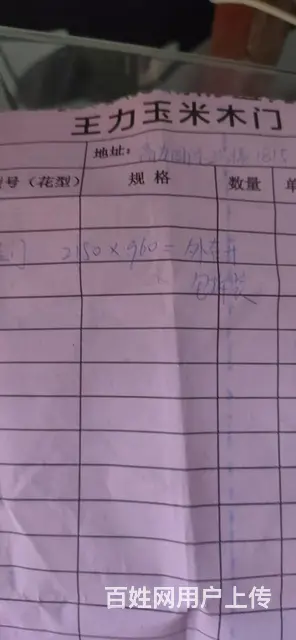 王力玉米木门
地址：
号（花型） 规格 数量 单
门 2150×960= 外右开
包安装
百姓网用户上传